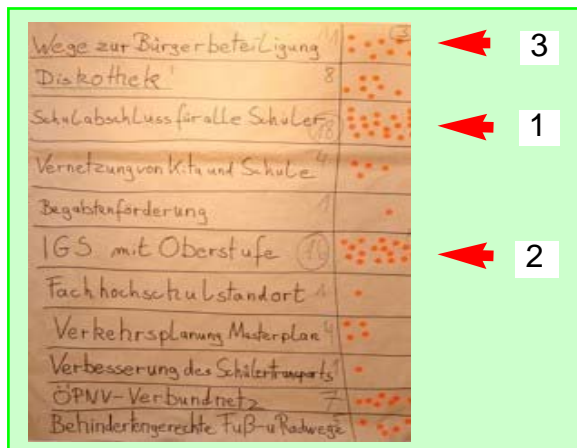 Wege zur Bürgerbeteiligung 11 3
3
Diskothek 8
Schulabschluss für alle Schüler 18
1
Vernetzung von Kita und Schule 4
Begabtenförderung 1
IGS mit Oberstufe
2
Fachhochschulstandort 1
Verkehrsplanung Masterplan 4
Verbesserung des Schülertransports 1
ÖPNV-Verbundnetz 7
Behindertengerechte Fuß-u Radwege